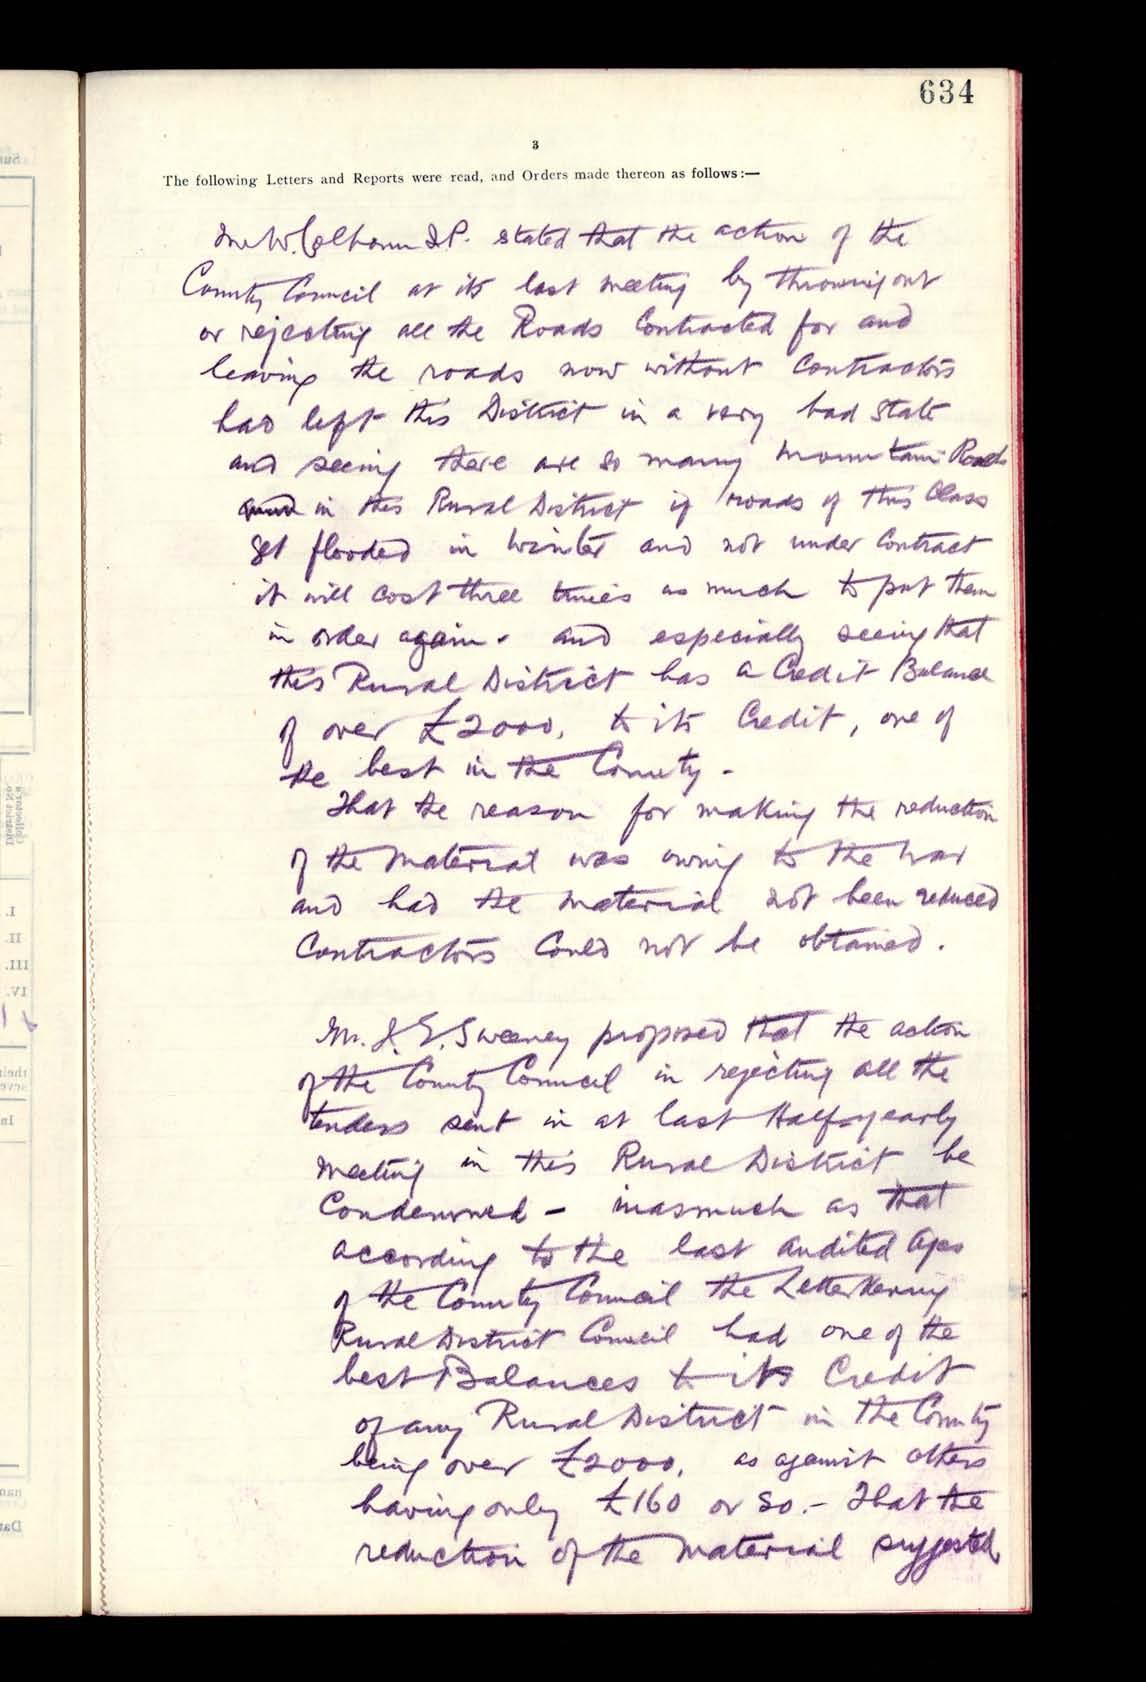 634
3
The following Letters and Reports were read, and Orders made thereon as follows:—
Mr W. Colhoun J.P. stated that the action of the
County Council at its last meeting by throwing out
or rejecting all the Roads Contracted for and
leaving the roads now without Contractors
had left this District in a very bad state
and seeing there are so many Mountain Roads
in this Rural District if roads of this Class
get flooded in Winter and not under Contract
it will cost three times as much to put them
in order again. and especially seeing that
this Rural District has a Credit Balance
of over £2000, to its Credit, one of
the best in the County -
That the reason for making the reduction
of the Material was owing to the War
and had the Material not been reduced
Contractors Could not be obtained.
Mr. J. E. Sweeney proposed that the action
of the County Council in rejecting all the
tenders sent in at last Half-yearly
Meeting in this Rural District be
Condemned - inasmuch as that
according to the last audited a/cs
of the County Council the Letterkenny
Rural District Council had one of the
best Balances to its Credit
of any Rural District in the County
being over £2000, as against others
having only £160 or so. - That the
reduction of the Material suggested